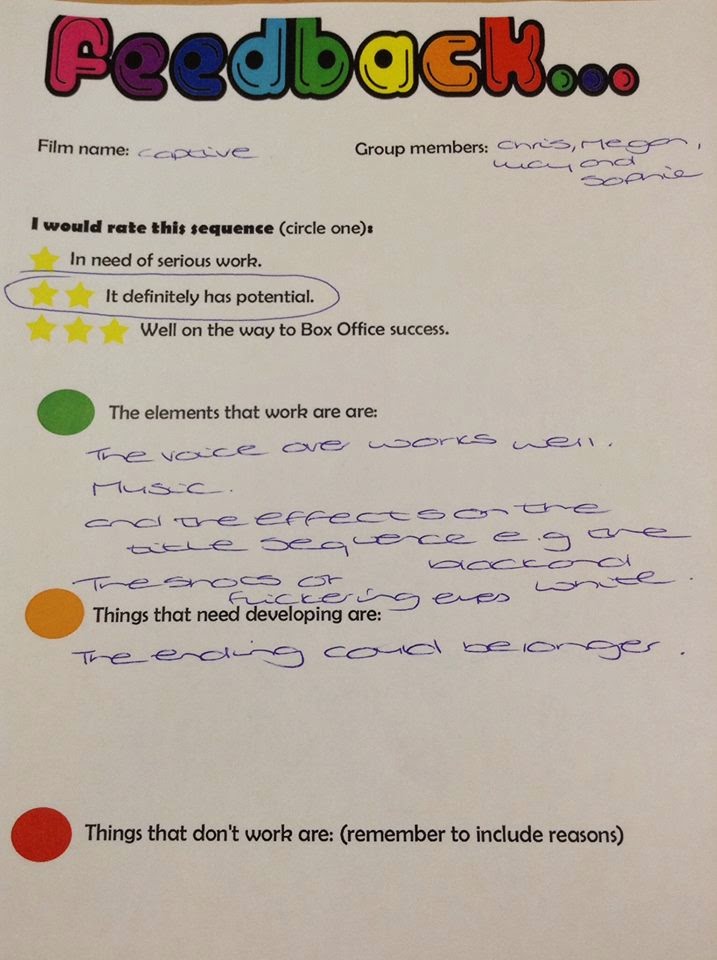 Feedback...
Film name: captive
Group members: Chris, Megan,
and
Sophie
I would rate this sequence (circle one):
In need of serious work.
It definitely has potential.
Well on the way to Box Office success.
The elements that work are are:
The voice over works well.
Music.
and the effects on the
title sequence e.g the
black and
white.
The shots of
flickering eyes
Things that need developing are:
The ending could be longer.
Things that don't work are: (remember to include reasons)